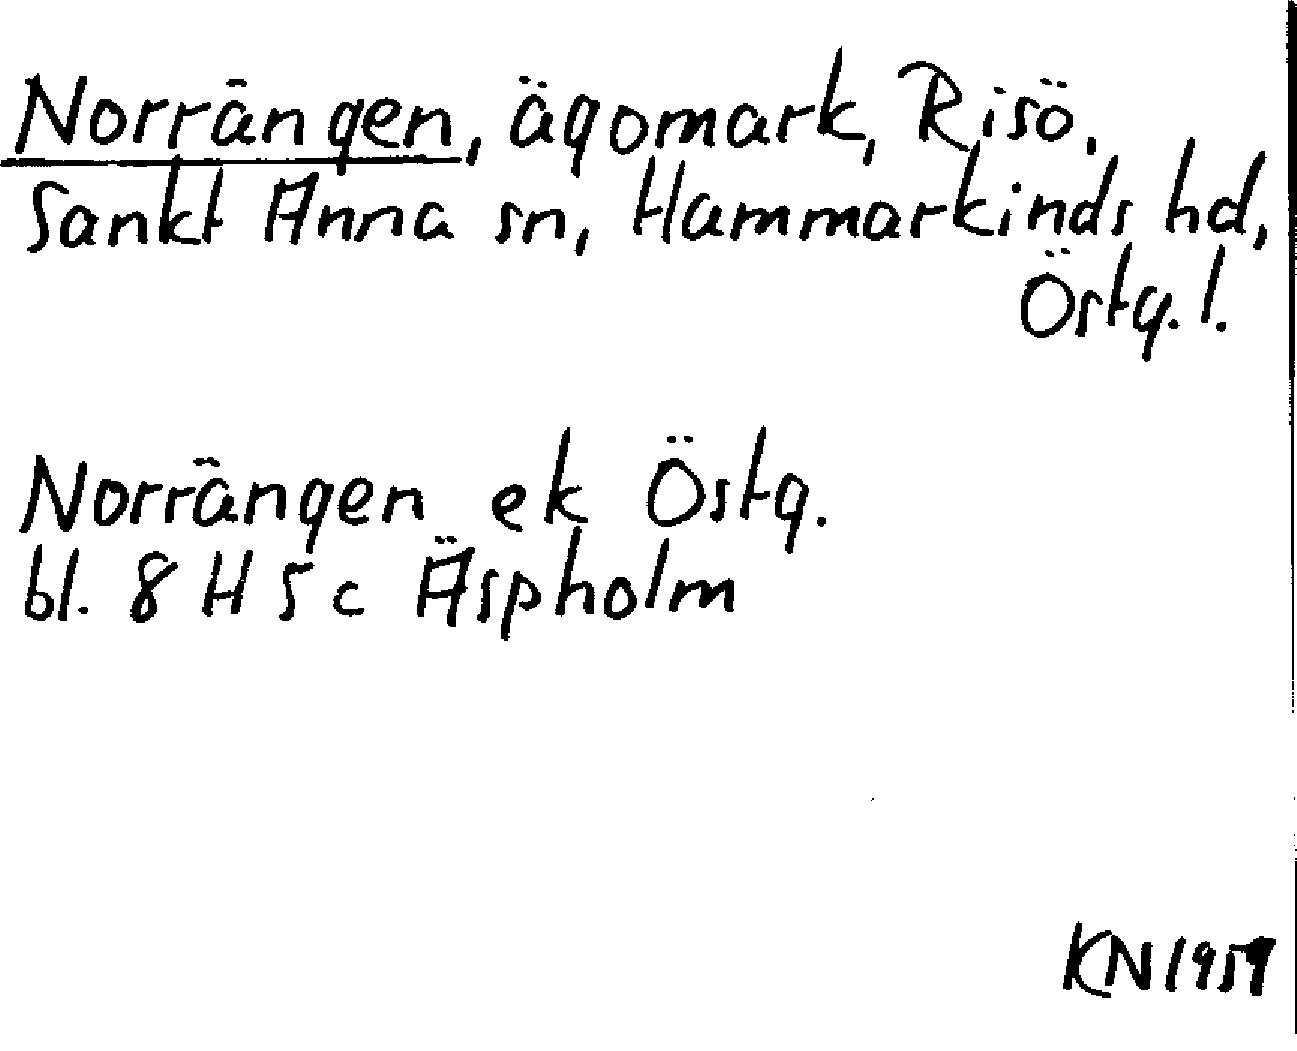 Norrängen, ägomark, Risö.
Sankt Anna sn, Hammarkinds hd,
Östg. l.
Norrängen ek Östg.
bl. 8 H 5 c Äspholm
KN 1959